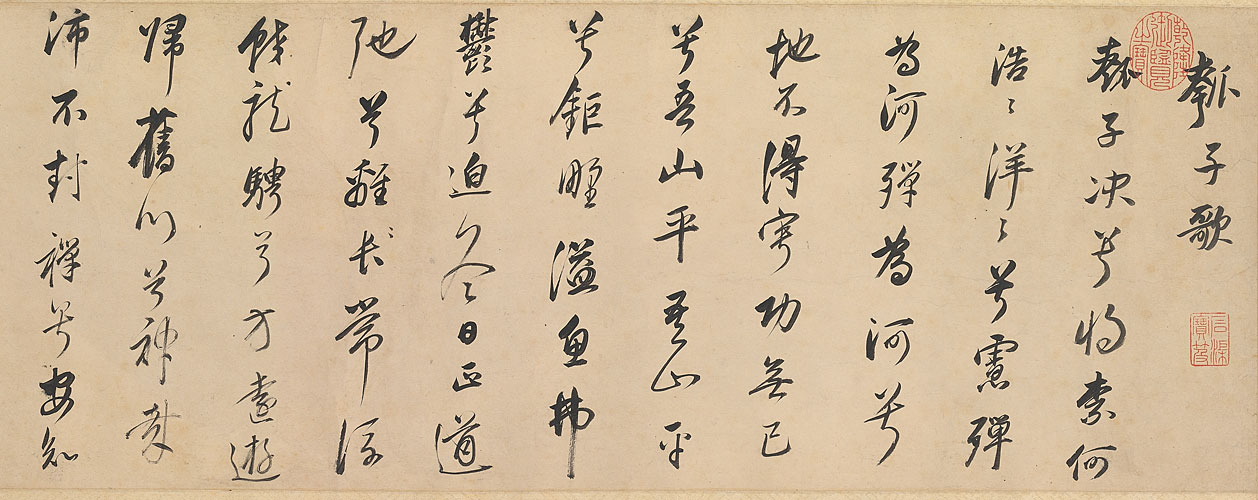 瓠子歌
瓠子决兮將柰何
浩〻洋〻兮慮殫
為河殫為河兮
地不得寧功無已
兮吾山平吾山平
兮鉅野溢魚弗
鬱兮迫冬日正道
弛兮離長常流
蛟龍騁兮方遠遊
歸舊川兮神哉
沛不封禪兮安知
乾隆御覽之寶
石渠寶笈